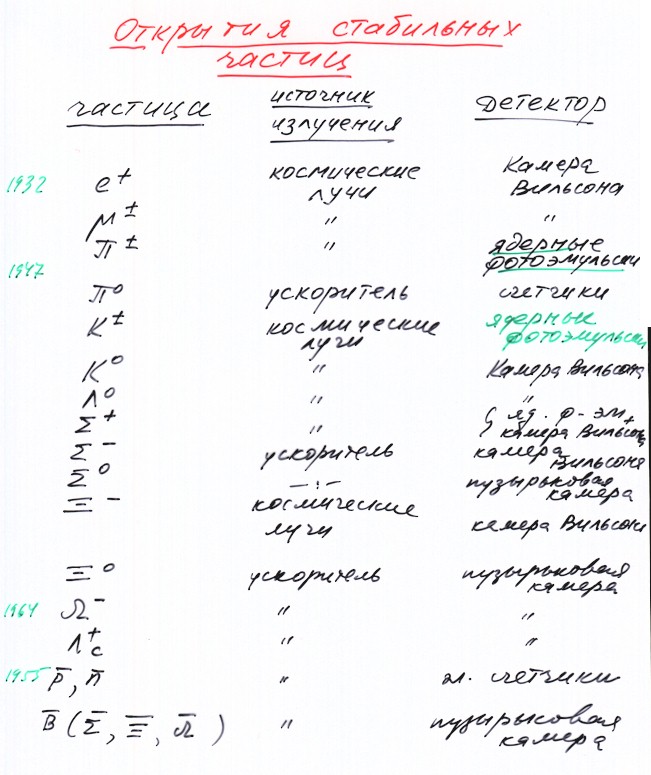 Открытия стабильных
частиц
частица источник излучения Детектор
1932 e⁺ космические лучи Камера Вильсона
μ± " "
π± " ядерные фотоэмульсии
1947
π⁰ ускоритель счетчики
K± космические лучи ядерные фотоэмульсии
K⁰ " Камера Вильсона
Λ⁰ " "
Σ⁺ " { яд. ф-эм + камера Вильсона
Σ⁻ ускоритель камера Вильсона
Σ⁰ –:– пузырьковая камера
Ξ⁻ космические лучи камера Вильсона
Ξ⁰ ускоритель пузырьковая камера
1964 Ω⁻ " "
Λ⁺c " "
1955 p̅, n̅ " эл. счетчики
B̅ (Σ̅, Ξ̅, Ω̅) " пузырьковая камера